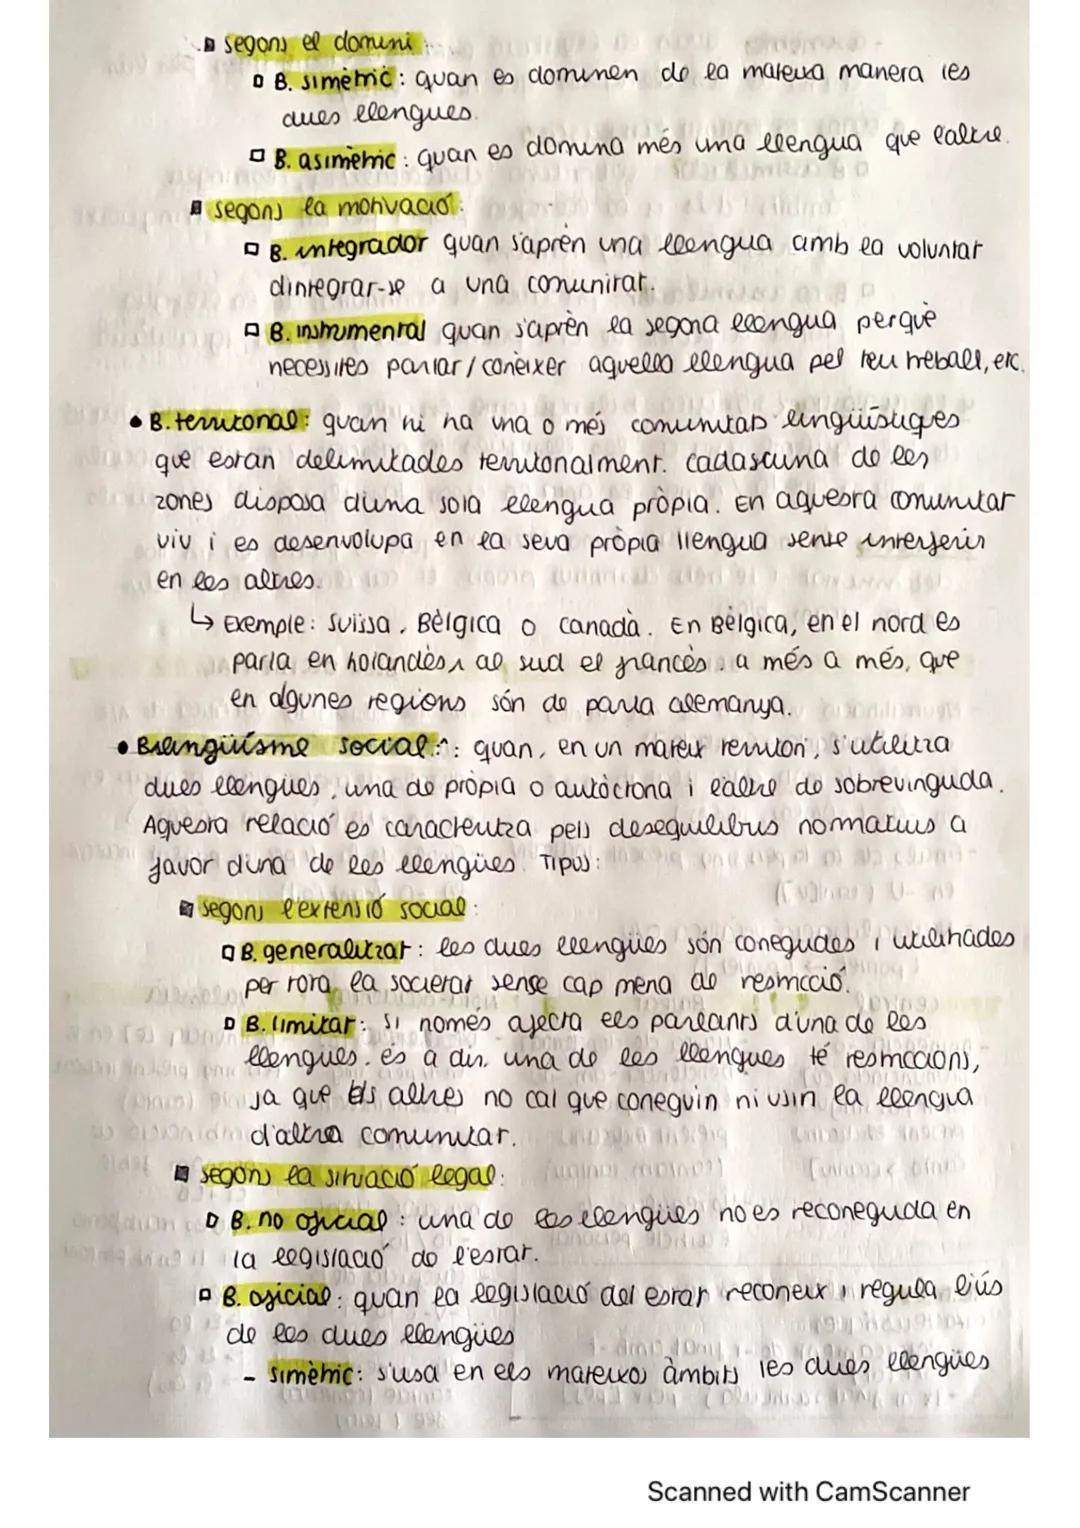 segons el domini:
B. simètric: quan es dominen de la mateixa manera les
dues llengües.
B. asimètric: quan es domina més una llengua que l'altre.
segons la motivació:
B. integrador quan s'aprèn una llengua amb la voluntat
d'integrar-se a una comunitat.
B. instrumental quan s'aprèn la segona llengua perquè
necessites parlar/conèixer aquella llengua pel teu treball, etc.
B. territorial: quan hi ha una o més comunitats lingüístiques
que estan delimitades territorialment. cadascuna de les
zones disposa d'una sola llengua pròpia. En aquesta comunitat
viu i es desenvolupa en la seva pròpia llengua sense interferir
en les altres.
↳ Exemple: Suïssa, Bèlgica o Canadà. En Bèlgica, en el nord es
parla en holandès, al sud el francès. a més a més, que
en algunes regions són de parla alemanya.
Bilingüisme social: quan, en un mateix territori, s'utilitza
dues llengües, una de pròpia o autòctona i l'altre de sobrevinguda.
Aquesta relació es caracteritza pels desequilibris normatius a
favor d'una de les llengües. Tipus:
segons l'extensió social:
B. generalitzat: les dues llengües són conegudes i utilitzades
per tota la societat sense cap mena de restricció.
B. limitat: si només afecta els parlants d'una de les
llengües. és a dir, una de les llengües té restriccions,
ja que els altres no cal que coneguin ni usin la llengua
d'altra comunitat.
segons la situació legal:
B. no oficial: una de les llengües no es reconeguda en
la legislació de l'estat.
B. oficial: quan la legislació del estat reconeix i regula l'ús
de les dues llengües
- simètric: s'usa en els mateixos àmbits les dues llengües
Scanned with CamScanner